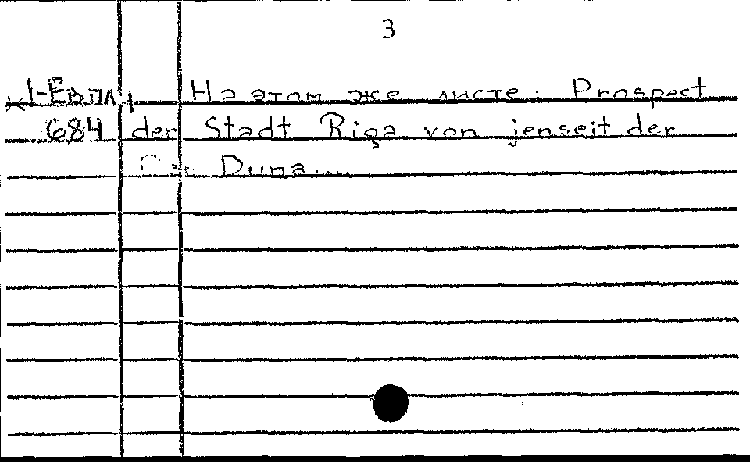 3
К1-Евпл/1 На этом же листе: Prospect
684 der Stadt Riga von jenseit der
Duna...